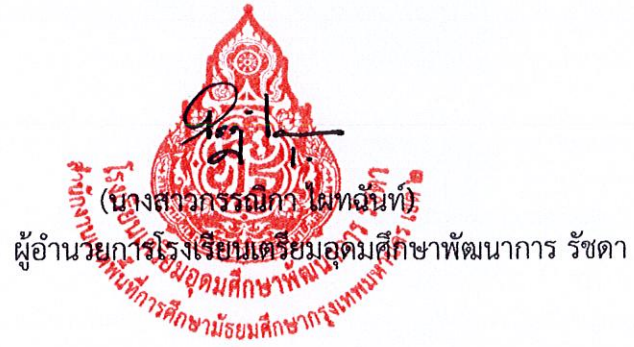 (นางสาวกรรณิกา ไผทฉันท์)
ผู้อำนวยการโรงเรียนเตรียมอุดมศึกษาพัฒนาการ รัชดา
โรงเรียนเตรียมอุดมศึกษาพัฒนาการ รัชดา
สำนักงานเขตพื้นที่การศึกษามัธยมศึกษากรุงเทพมหานคร เขต ๑